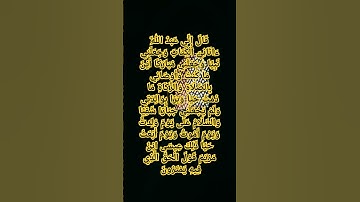 قَالَ إِنِّي عَبْدُ اللَّهِ
ءَاتَانِيَ الْكِتَابَ وَجَعَلَنِي
نَبِيًّا وَجَعَلَنِي مُبَارَكًا أَيْنَ
مَا كُنْتُ وَأَوْصَانِي
بِالصَّلَاةِ وَالزَّكَاةِ مَا
دُمْتُ حَيًّا وَبَرًّا بِوَالِدَتِي
وَلَمْ يَجْعَلْنِي جَبَّارًا شَقِيًّا
وَالسَّلَامُ عَلَيَّ يَوْمَ وُلِدْتُ
وَيَوْمَ أَمُوتُ وَيَوْمَ أُبْعَثُ
حَيًّا ذَلِكَ عِيسَى ابْنُ
مَرْيَمَ قَوْلَ الْحَقِّ الَّذِي
فِيهِ يَمْتَرُونَ